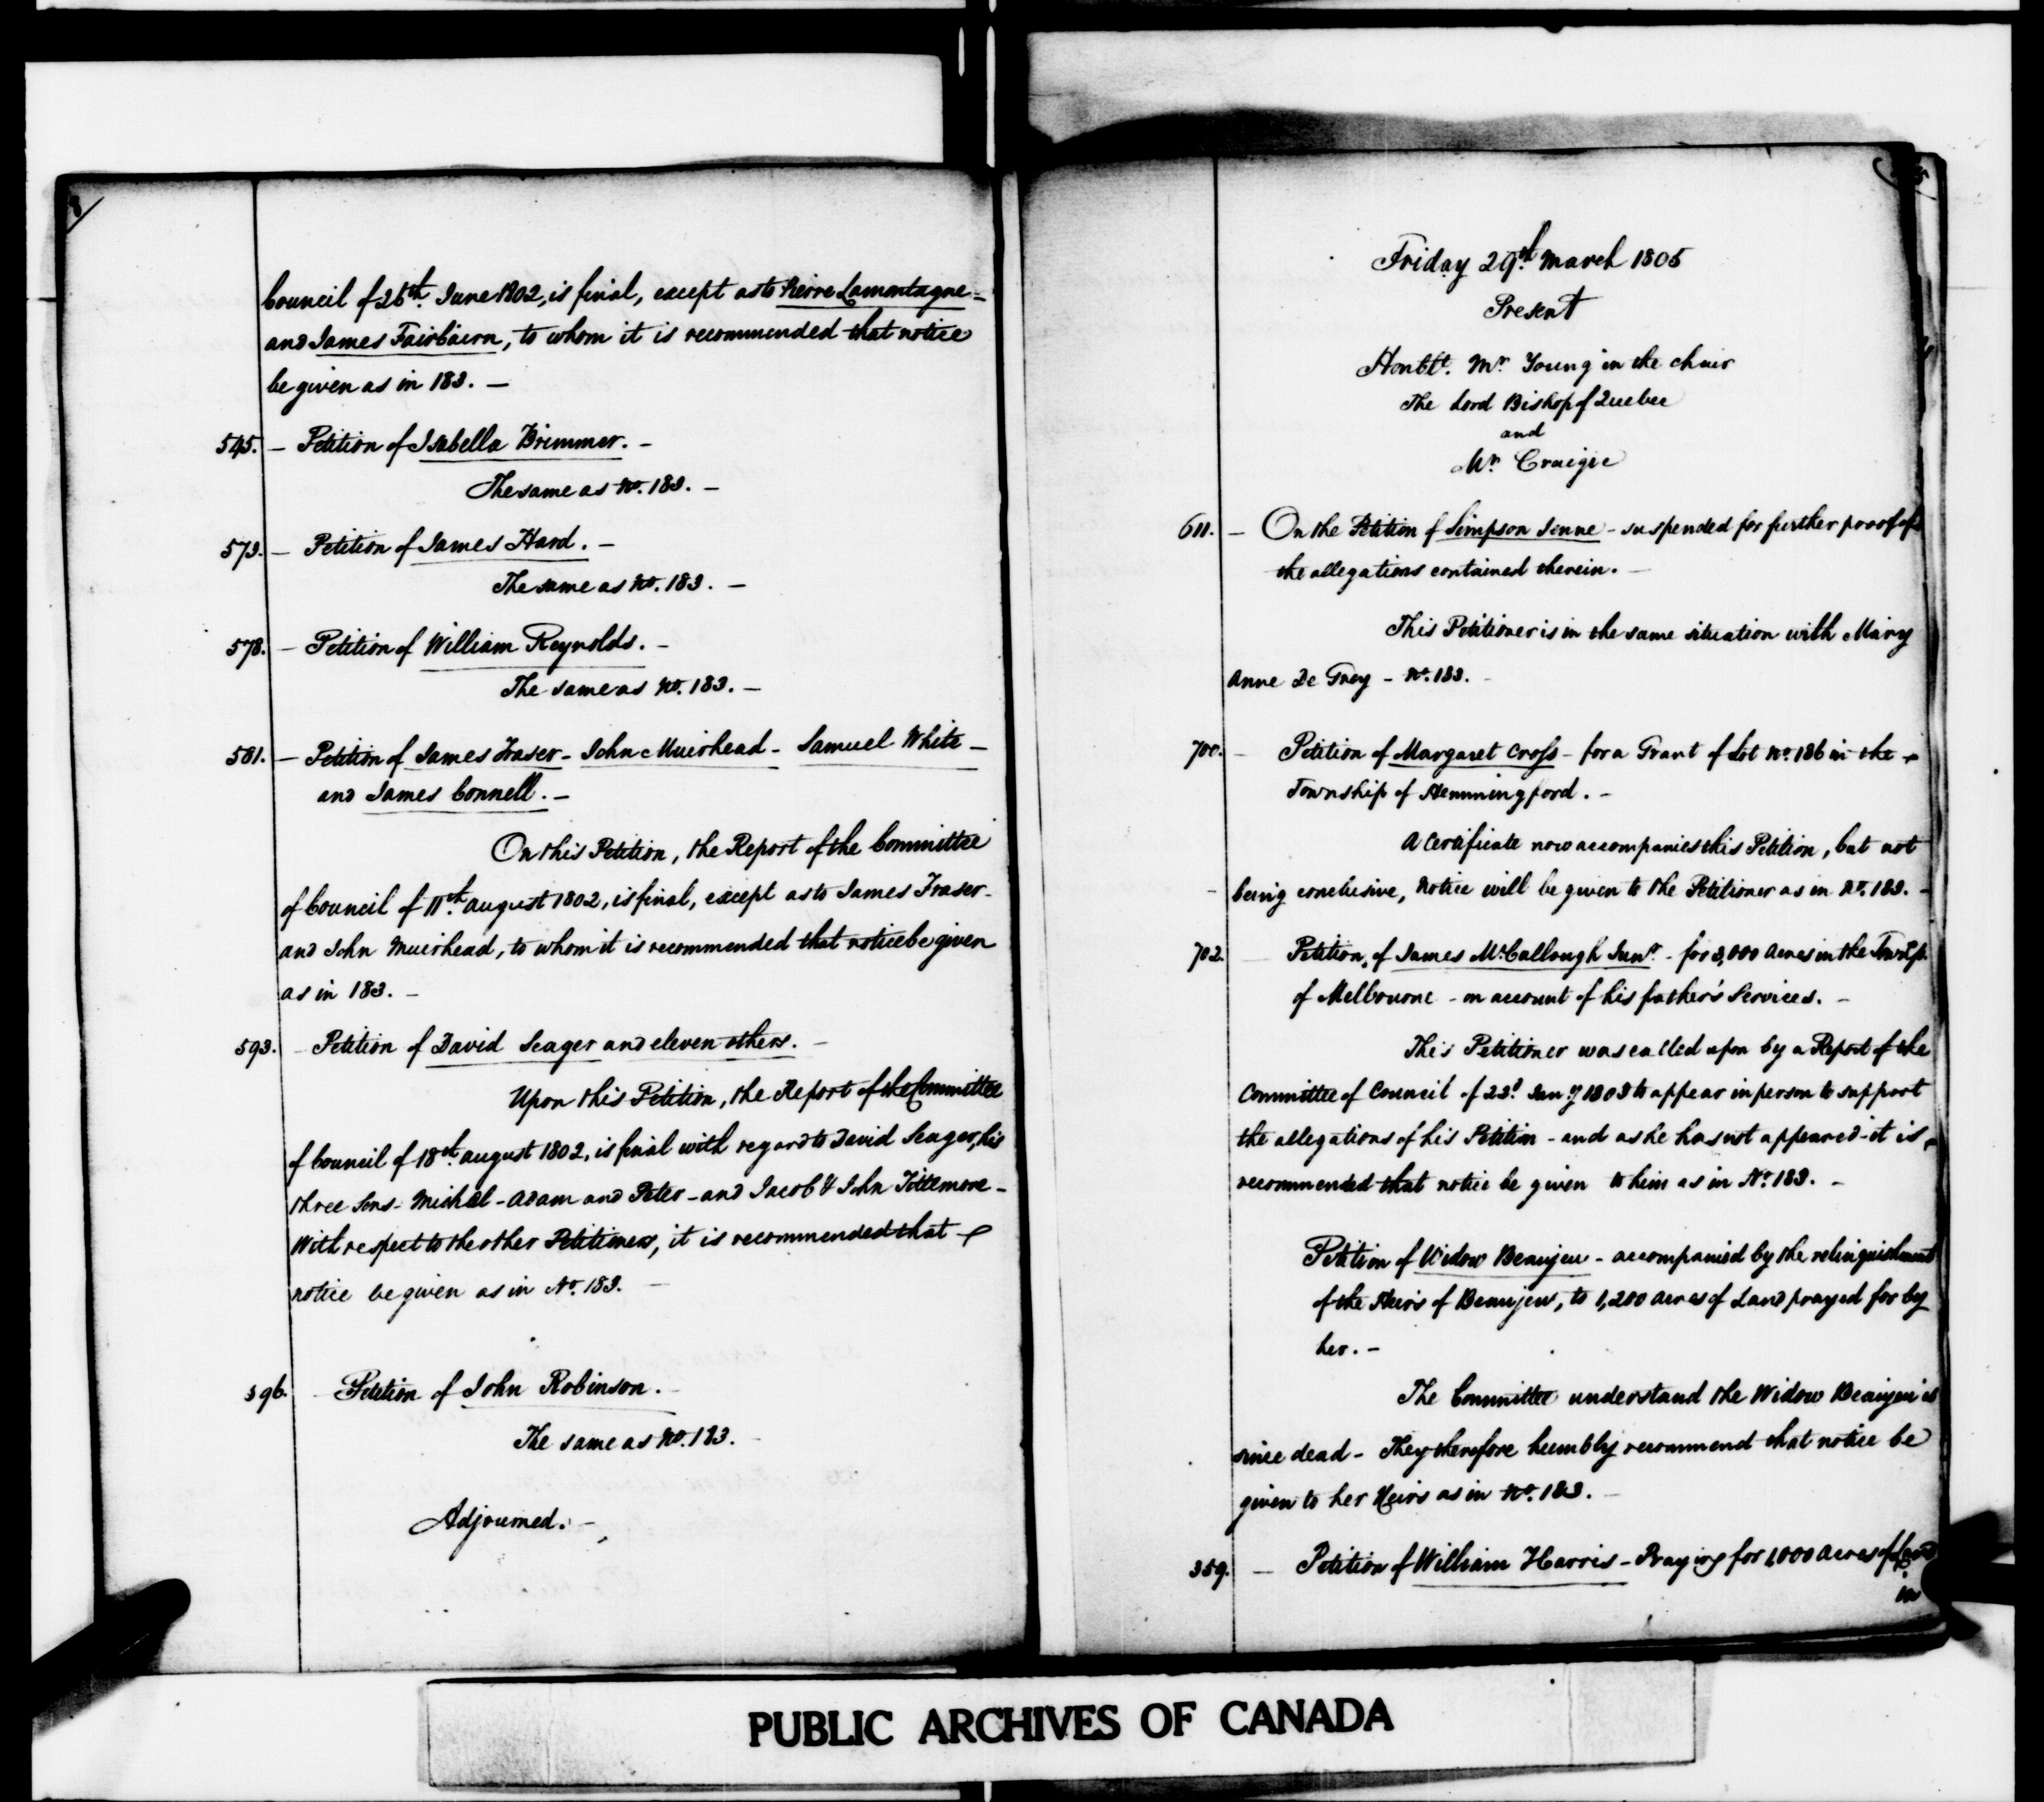 Council of 26th June 1802, is final, except as to Pierre Lamontagne =
and James Fairbairn, to whom it is recommended that notice
be given as in 183. —
545. — Petition of Isabella Brimmer. —
The same as No. 183. —
573. — Petition of James Hard. —
The same as No. 183. —
578. — Petition of William Reynolds. —
The same as No. 183. —
581. — Petition of James Fraser - John Muirhead - Samuel White —
and James Connell. —
On this Petition, the Report of the Committee
of Council of 11th August 1802, is final, except as to James Fraser -
and John Muirhead, to whom it is recommended that notice be given
as in 183. —
593. — Petition of David Seager and eleven others. —
Upon this Petition, the Report of the Committee
of Council of 18th August 1802, is final with regard to David Seager, his
three Sons - Michel - Adam and Peter - and Jacob & John Tittemore -
With respect to the other Petitioners, it is recommended that
notice be given as in No. 183. —
596. — Petition of John Robinson. —
The same as No. 183. —
Adjourned. —
Friday 29th March 1805
Present
Honble. Mr. Young in the chair
The Lord Bishop of Quebec
and
Mr. Craigie
611. — On the Petition of Simpson Jenne - suspended for further proof of
the allegations contained therein. —
This Petitioner is in the same situation with Mary
Anne De Grey - No. 183. -
700. — Petition of Margaret Cross - for a Grant of Lot No. 186 in the
Township of Hemmingford. —
A Certificate now accompanies this Petition, but not
being conclusive, notice will be given to the Petitioner as in No. 183. -
702. — Petition of James McCullough Junr. - for 3,000 Acres in the Townsp.
of Melbourne - on account of his father's Services. —
This Petitioner was called upon by a Report of the
Committee of Council of 23d Jany 1803 to appear in person to support
the allegations of his Petition - and as he has not appeared - it is
recommended that notice be given to him as in No. 183. -
Petition of Widow Beaujeu - accompanied by the relinquishment
of the Heirs of Beaujeu, to 1,200 Acres of Land prayed for by
her. -
The Committee understand the Widow Beaujeu is
since dead - They therefore humbly recommend that notice be
given to her Heirs as in No. 183. —
359. — Petition of William Harris - Praying for 1,000 Acres of Land
in
PUBLIC ARCHIVES OF CANADA